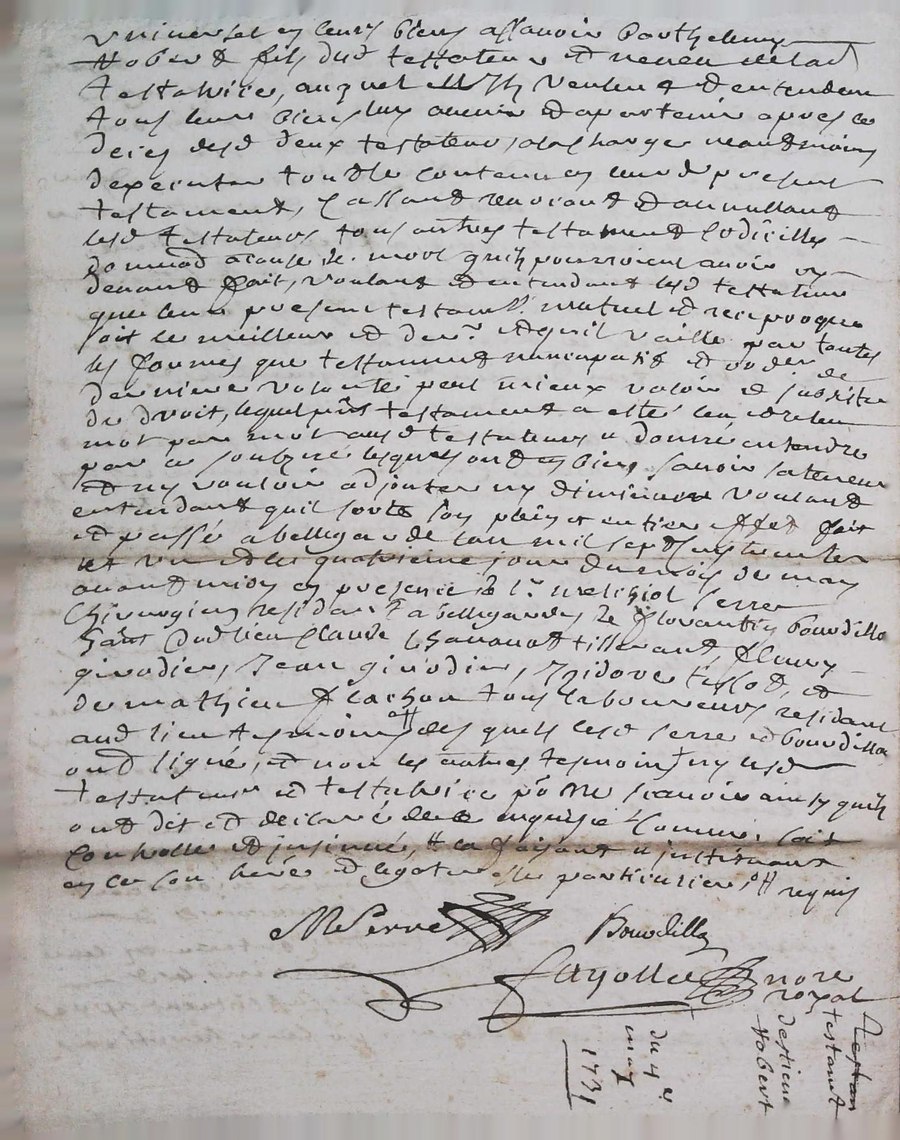 universel en leurs biens assavoir Barthelemy
Robert fils dud testateur et neveu de lad
testatrice, auquel ils veulent et entendent
tous leurs biens luy avenir et apartenir apres le
deces desd deux testateurs, a la charge neantmoins
dexecuter tout le contenu en leur present
testament, cassant revocant et annullant
lesd testateurs tous autres testament codicilles
donna~on a cause de mort quils pourroient avoir cy
devant fait, voulant et entendant lesd testateurs
que leur present testam~t mutuel et reciproque
soit le meilleur et der~r et quil vaille par toutes
les formes que testament nuncupatif et ordon de
derniere volonté peut mieux valoir et subsister
de droit, lequel p~nt testament a esté leu et releu
mot par mot ausd testateurs et donné entendre
par ce soubzné lesquels ont dit bien scavoir la teneur
et ny vouloir adjouter ny diminuer voulant
entendant quil sorte son plein et entier effet fait
et passé a bellegarde lan mil sept cent trente
et un et le quatrieme jour du mois de may
avant midy en presence de s~r melchiol serre
chirurgien residant a bellegarde, s~r florantin Bourdillon
dud lieu claude tillerand, fleury
girodier, Jean girodier, Izidore et
de mathieu flachon tous laboureurs residant
aud lieu tesmoins desquels lesd serre et Bourdillon
ont signé, et non les autres tesmoins ny lesd
testateur et testatrice p~r ne scavoir ainsy quils
ont dit et declaré de ce enquis et somme, soit
controllé et insinué,
en ce son heré et legataires particuliers, requis
MSerre Bourdillon
Fayolle nore
royal
testamt
destiene
Robert
du 4e
may
1731